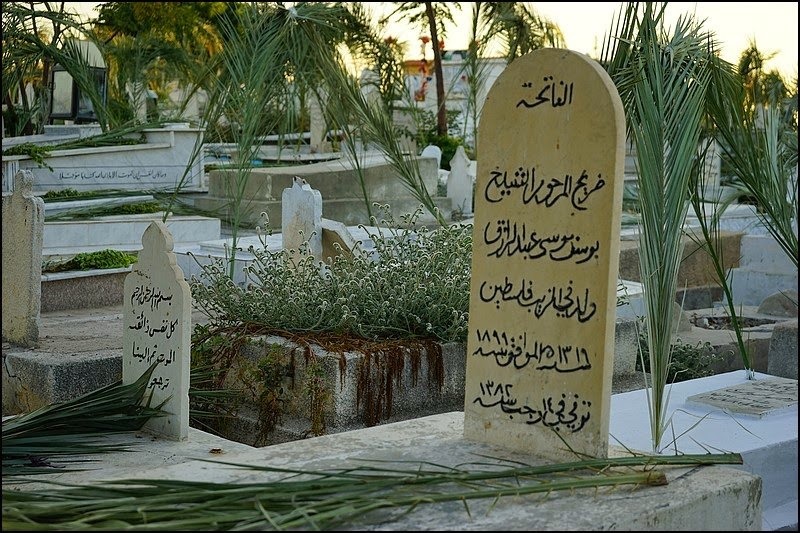 الفاتحة
ضريح المرحوم الشيخ
يوسف موسى عبد الرازق
ولد في المزيرعه فلسطين
سنة ١٣١٦ه الموافق سنة ١٨٩٩
توفي في ٤ رجب سنة ١٣٨٢
بسم الله الرحمن الرحيم
كل نفس ذائقة
الموت ثم الينا
ترجعون